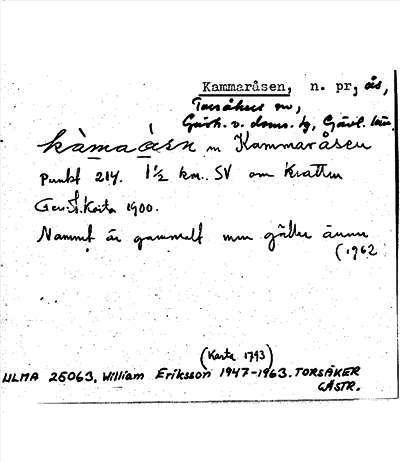 Kammaråsen, n. pr, ås,
Torsåkers sn,
Gästr. v. doms. tg, Gävl. län.
kàmaåsn m Kammaråsen
punkt 214. 1½ km. SV om Kratten
Gen.St.Karta 1900.
Namnet är gammalt men gäller ännu
(1962
(Karta 1793)
ULMA 25063, William Eriksson 1947-1963. TORSÅKER
GÄSTR.